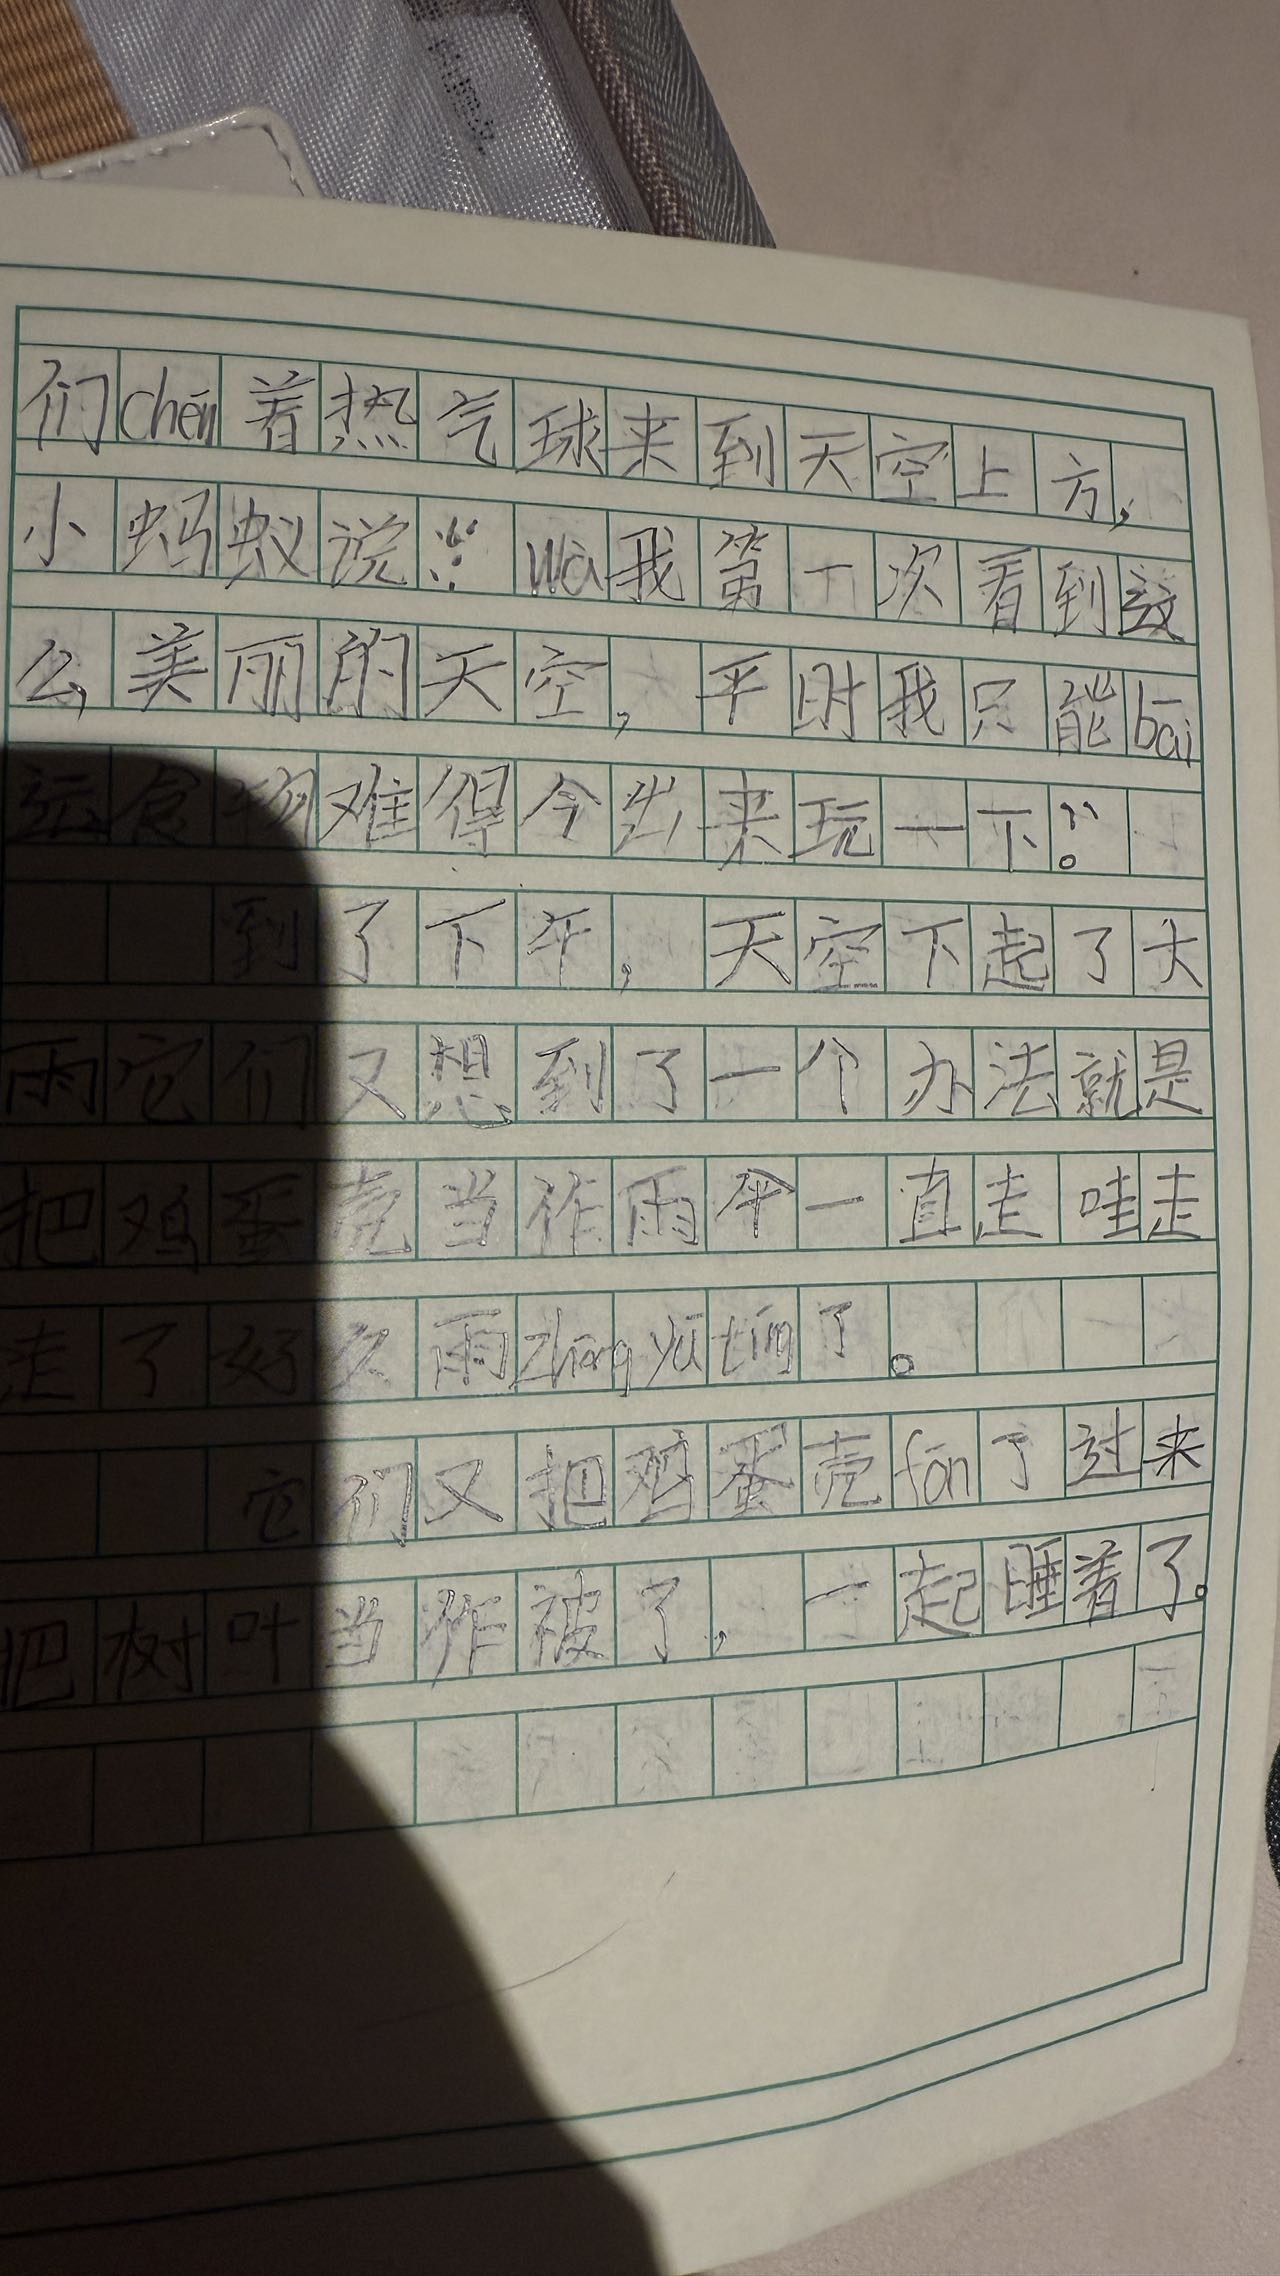 们chēn着热气球来到天空上方，
小蚂蚁说：“wā我第一次看到这
么，美丽的天空，平时我只能bāi
运食物难得今出来玩一下。”
到了下午，天空下起了大
雨它们又想到了一个办法就是
把鸡蛋壳当作雨伞一直走哇走
走了好久雨zhōng yū tíng了。
它们又把鸡蛋壳fān了过来
把树叶当作被了，一起睡着了。